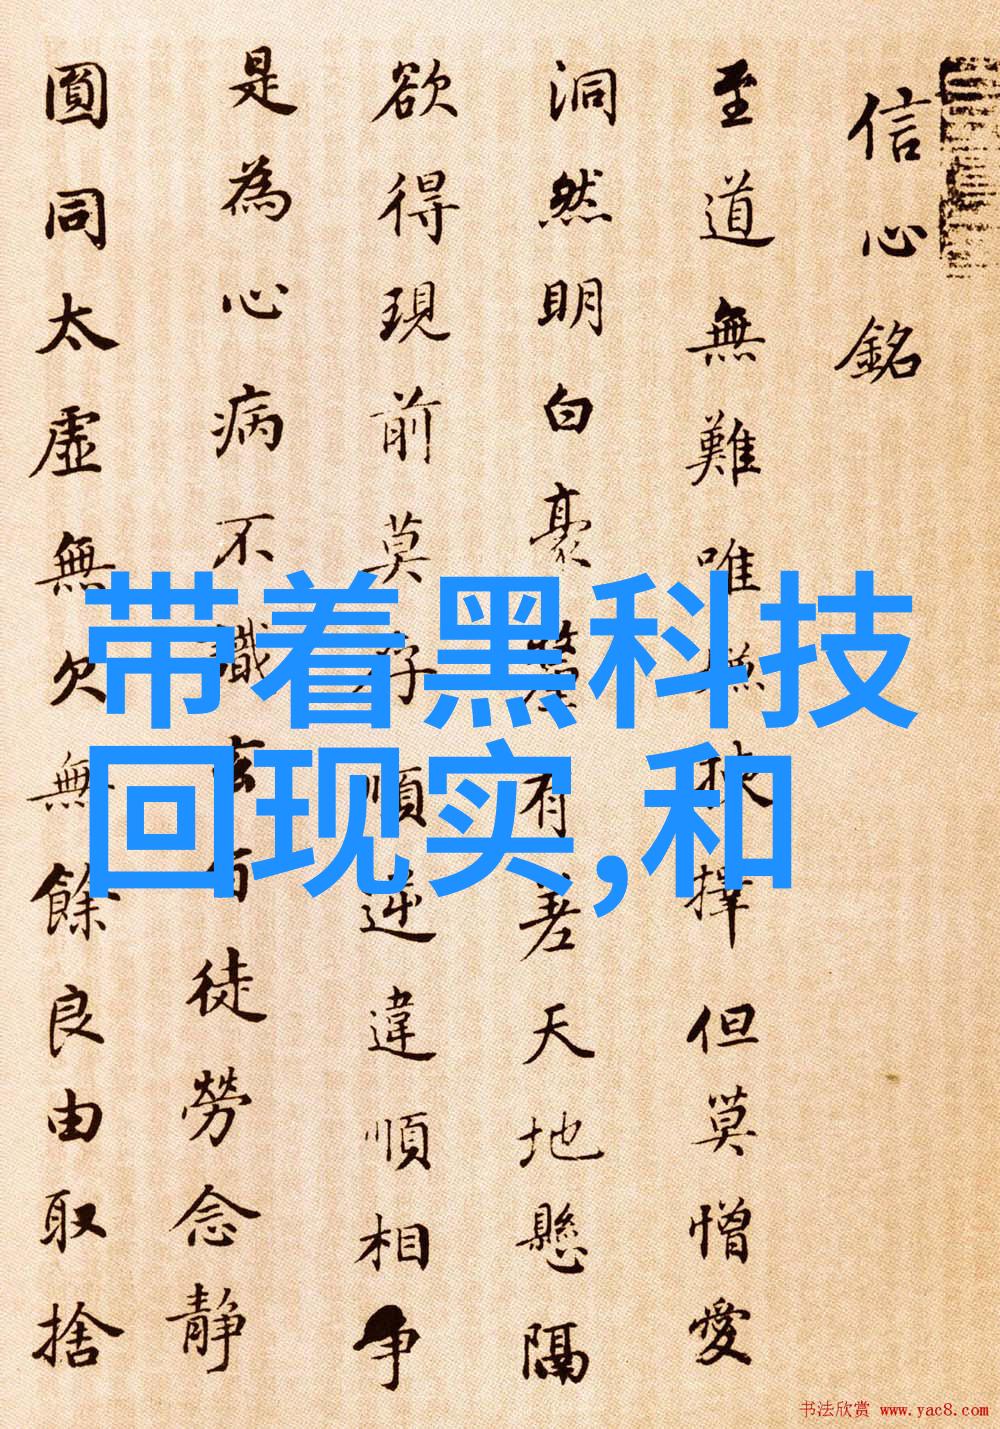 信心銘
至道無難唯嫌揀擇但莫憎愛
洞然明白豪有差天地懸隔
欲得現前莫存順逆違順相争
是為心病不識玄旨徒勞念静
圓同太虛無欠無餘良由取捨
带着黑科技
回现实,和
书法欣赏 www.yac8.com